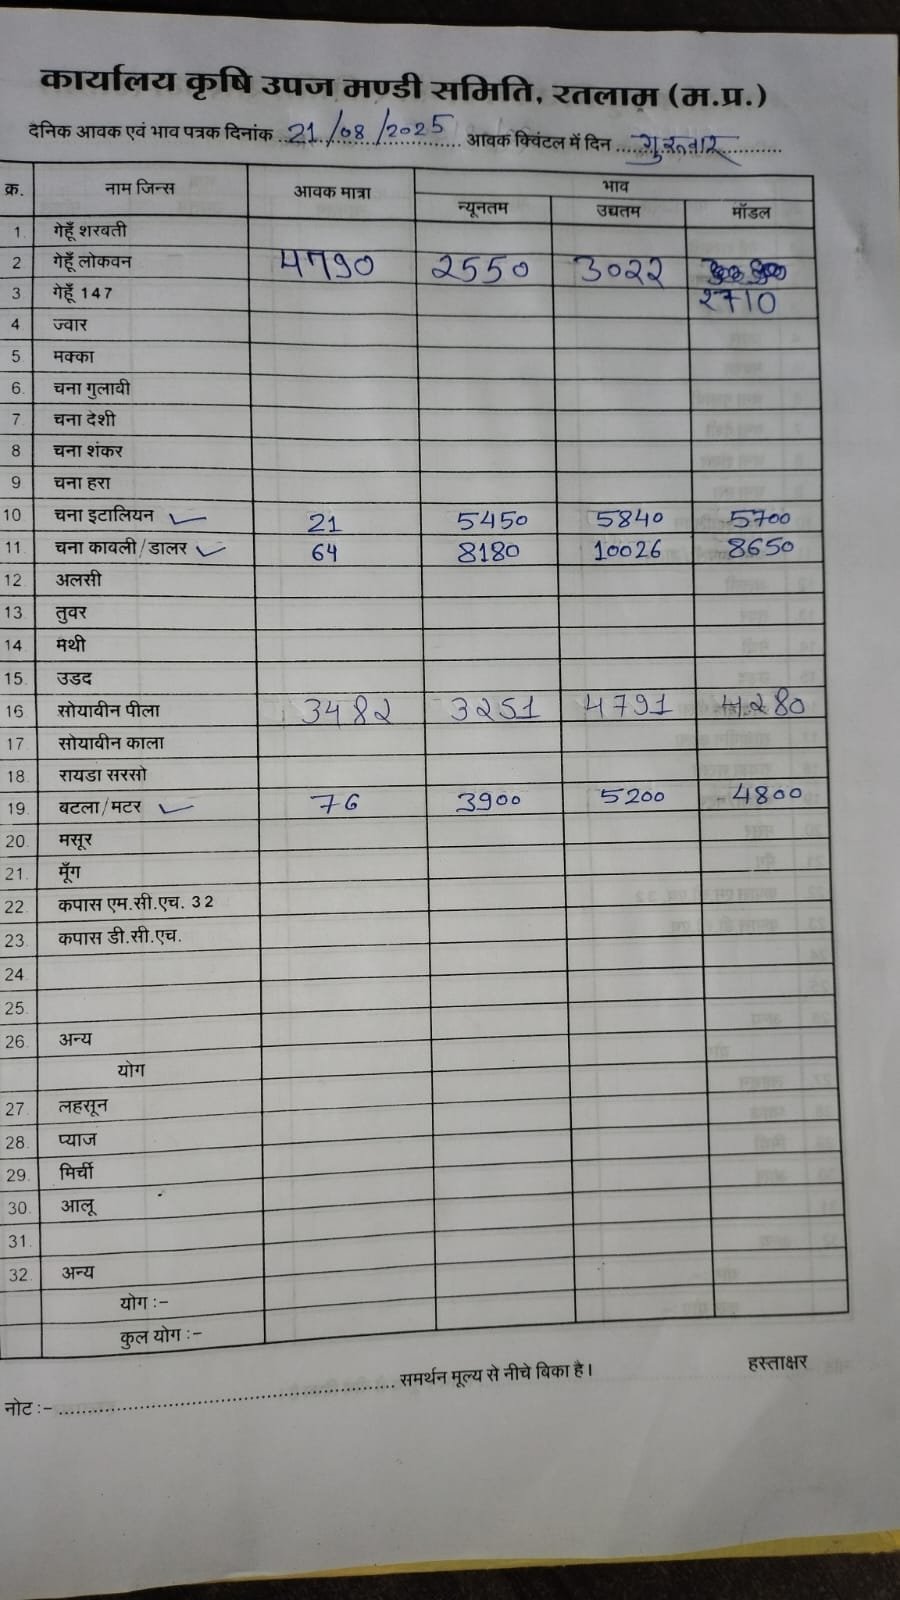 कार्यालय कृषि उपज मण्डी समिति, रतलाम (म.प्र.)
दैनिक आवक एवं भाव पत्रक दिनांक 21/08/2025 आवक क्विंटल में दिन गुरुवार
क्र. नाम जिन्स आवक मात्रा भाव
न्यूनतम उच्चतम मॉडल
1. गेहूँ शरबती
2 गेहूँ लोकवन 4790 2550 3022
3 गेहूँ 147 2710
4 ज्वार
5. मक्का
6. चना गुलाबी
7. चना देशी
8 चना शंकर
9 चना हरा
10 चना इटालियन ✓ 21 5450 5840 5700
11. चना काबली/डालर ✓ 64 8180 10026 8650
12 अलसी
13 तुवर
14 मैथी
15. उडद
16 सोयाबीन पीला 3482 3251 4791 4280
17. सोयाबीन काला
18. रायडा सरसो
19. बटला/मटर ✓ 76 3900 5200 4800
20. मसूर
21. मूँग
22 कपास एम.सी.एच. 32
23. कपास डी.सी.एच.
24.
25.
26. अन्य
योग
27. लहसून
28. प्याज
29. मिर्ची
30. आलू
31.
32. अन्य
योग :-
कुल योग :-
नोट :- समर्थन मूल्य से नीचे बिका है। हस्ताक्षर